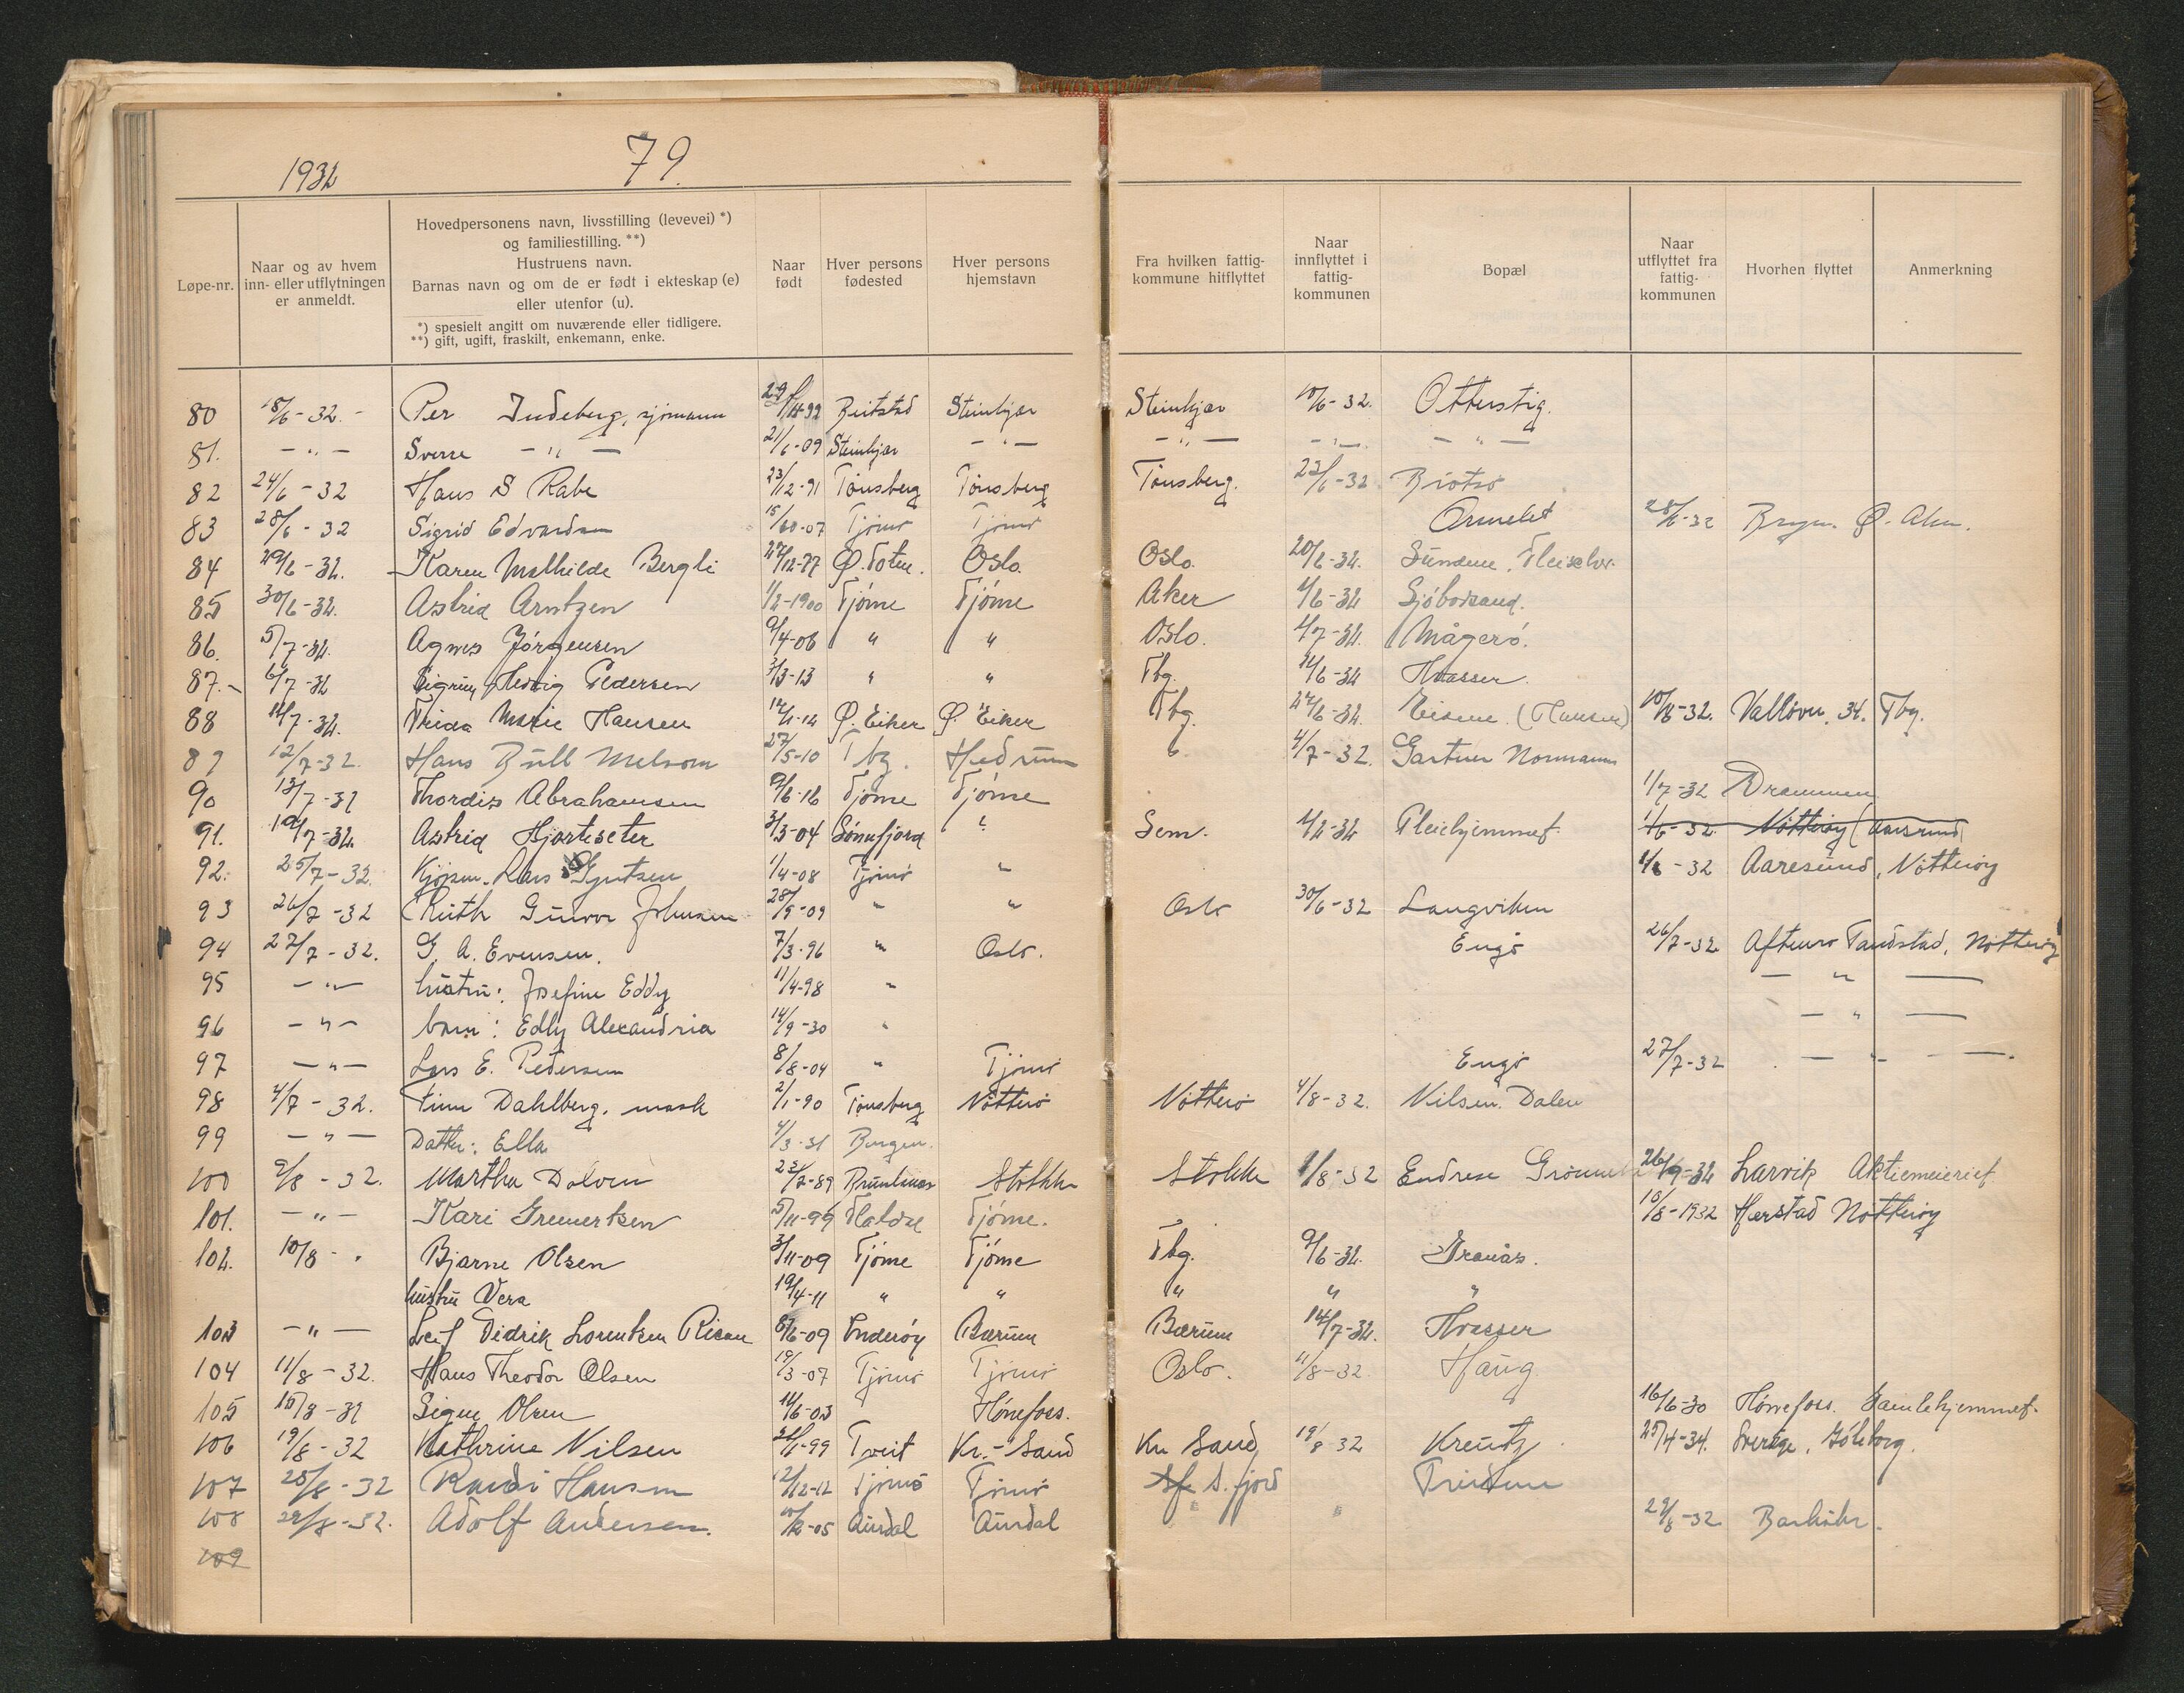 1932
79.
Løpe-nr.
Naar og av hvem inn- eller utflytningen er anmeldt.
Hovedpersonens navn, livsstilling (levevei) *) og familiestilling. **)
Hustruens navn.
Barnas navn og om de er født i ekteskap (e) eller utenfor (u).
*) spesielt angitt om nuværende eller tidligere.
**) gift, ugift, fraskilt, enkemann, enke.
Naar født
Hver persons fødested
Hver persons hjemstavn
Fra hvilken fattigkommune hitflyttet
Naar innflyttet i fattigkommunen
Bopæl
Naar utflyttet fra fattigkommunen
Hvorhen flyttet
Anmerkning
80 18/6-32. - Per Indeberg, sjømann Beitstad Steinkjær Steinkjær 10/6-32. Otterstig.
81. - " - Sverre - " - 21/6-09 Steinkjær - " - - " - - " - - " -
82 24/6-32 Hans S Rabe 23/12-91 Tønsberg Tønsberg Tønsberg. 23/6-32 Brøtsø
83 28/6-32 Sigrid Edvardsen Tjømø Tjømø Ormelet 28/6-32
84 29/6-32. Karen Mathilde Bergli 27/12-77 Ø. Toten. Oslo. Oslo. 20/6-32. Sundene,
85 30/6-32. Astrid Arntzen 1/2-1900 Tjøme Tjøme Aker 1/6-32 Sjøbodsand.
86. 5/7-32. Agnes Jørgensen 9/4-06 " " Oslo. 1/7-32. Mågerø.
87. - 6/7-32 Sigrun Hedvig Pedersen 3/3-13 " " Tbg. Hvasser.
88 Frida Marie Hansen Ø. Eiker Ø. Eiker Tbg. 27/6-32. (Hansen) 10/8-32. Valløvn. 34. Tbg.
89 12/7-32. Hans Bull Melsom 27/5-10 Tbg. Hedrum " 4/7-32. Gartner Normann
90 13/7-32 Thordis Abrahamsen Tjøme Tjøme 1/7-32 Drammen
91. 19/7-32. Astrid Hjorteseter 3/3-04 " Sem. 1/2-32 Pleiehjemmet.
92. 25/7-32. Lars 1/4-08 Tjømø " Aaresund, Nøtterøy
93 26/7-32 Ruth Gunvor Johnsen 28/9-09 " " Oslo 30/6-32 Langviken
94 27/7-32. G. A. Evensen. 7/3-96 " Oslo. Engø 26/7-32 Nøtterøy
95 - " - hustru: Josefine Eddy 11/4-98 " - " -
96 - " - barn: Edly Alexandria 14/9-30 " - " -
97 - " - Lars E. Pedersen 8/8-04 " Tjømø Engø 27/7-32 - " -
98 4/7-32. Finn Dahlberg, mask 2/1-90 Tønsberg Nøtterø Nøtterø 4/8-32. Nilsen. Dalen
99 - " - Datter: Ella 4/3-31 Bergen.
100 9/8-32. Martha Dalven 23/7-89 Brunlanes Stokke Stokke 1/8-32 Endrese 26/9-32 Larvik Aktiemeieriet.
101. - " - Kari Gremertsen 5/11-99 Tjøme. 10/8-1932 Herstad Nøtterøy
102. 10/8 - " Bjarne Olsen 3/11-09 Tjøme Tjøme Tbg. 9/6-32. Granås.
hustru Vera 19/4-11 " " " " "
103 - " - Leif Didrik Lorentzen Risan Inderøy Bærum Bærum 14/7-32. Hvasser
104 11/8-32. Hans Theodor Olsen 19/3-07 Tjømø Tjømø Oslo. 11/8-32 Haug
105 15/8-32 Signe Olsen 14/6-03 Hønefoss. 16/6-30 Hønefoss. Gamlehjemmet.
106 19/8-32 Kathrine Nilsen Tveit Kr.-Sand Kr. Sand 19/8-32 Kreutz 25/4-34. Sverige, Gøteborg.
107 25/8-32 Randi Hansen 12/12-12 Tjømø Tjømø S. fjord
108 29/8-32. Adolf Andersen. Aurdal Aurdal " " 29/8-32
109